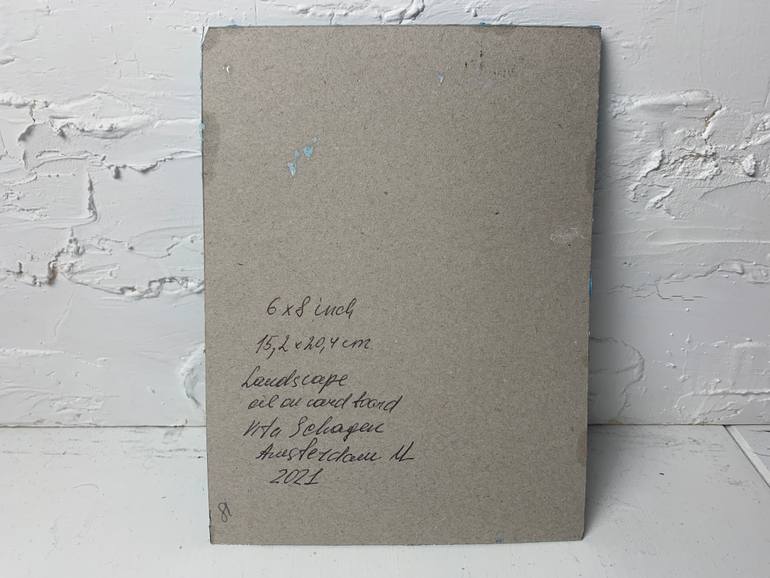 6 x 8 inch
15,2 x 20,4 cm
Landscape
oil on cardboard
Vita Schagen
Amsterdam
2021